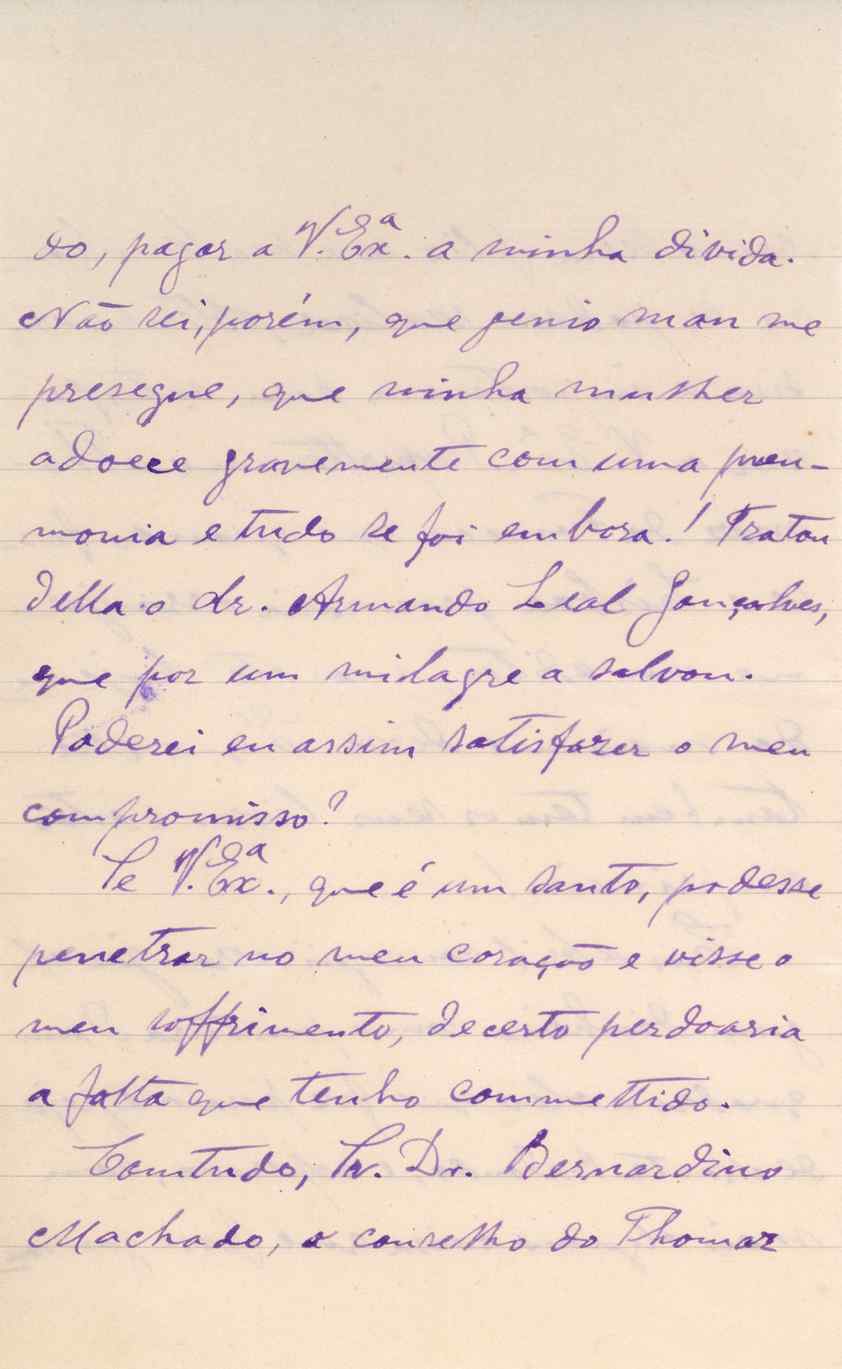 do, pagar a V. Exª. a minha divida.
Não sei, porém, que genio mau me
presegue, que minha mulher
adoece gravemente com uma pneu-
monia e tudo se foi embora! Tratou
della o dr. Armando Leal Gonçalves,
que por um milagre a salvou.
Poderei eu assim satisfazer o meu
compromisso?
Se V. Exª., que é um santo, podesse
penetrar no meu coração e visse o
meu soffrimento, decerto perdoaria
a falta que tenho commettido.
Comtudo, Sr. Dr. Bernardino
Machado, a conselho do Thomaz